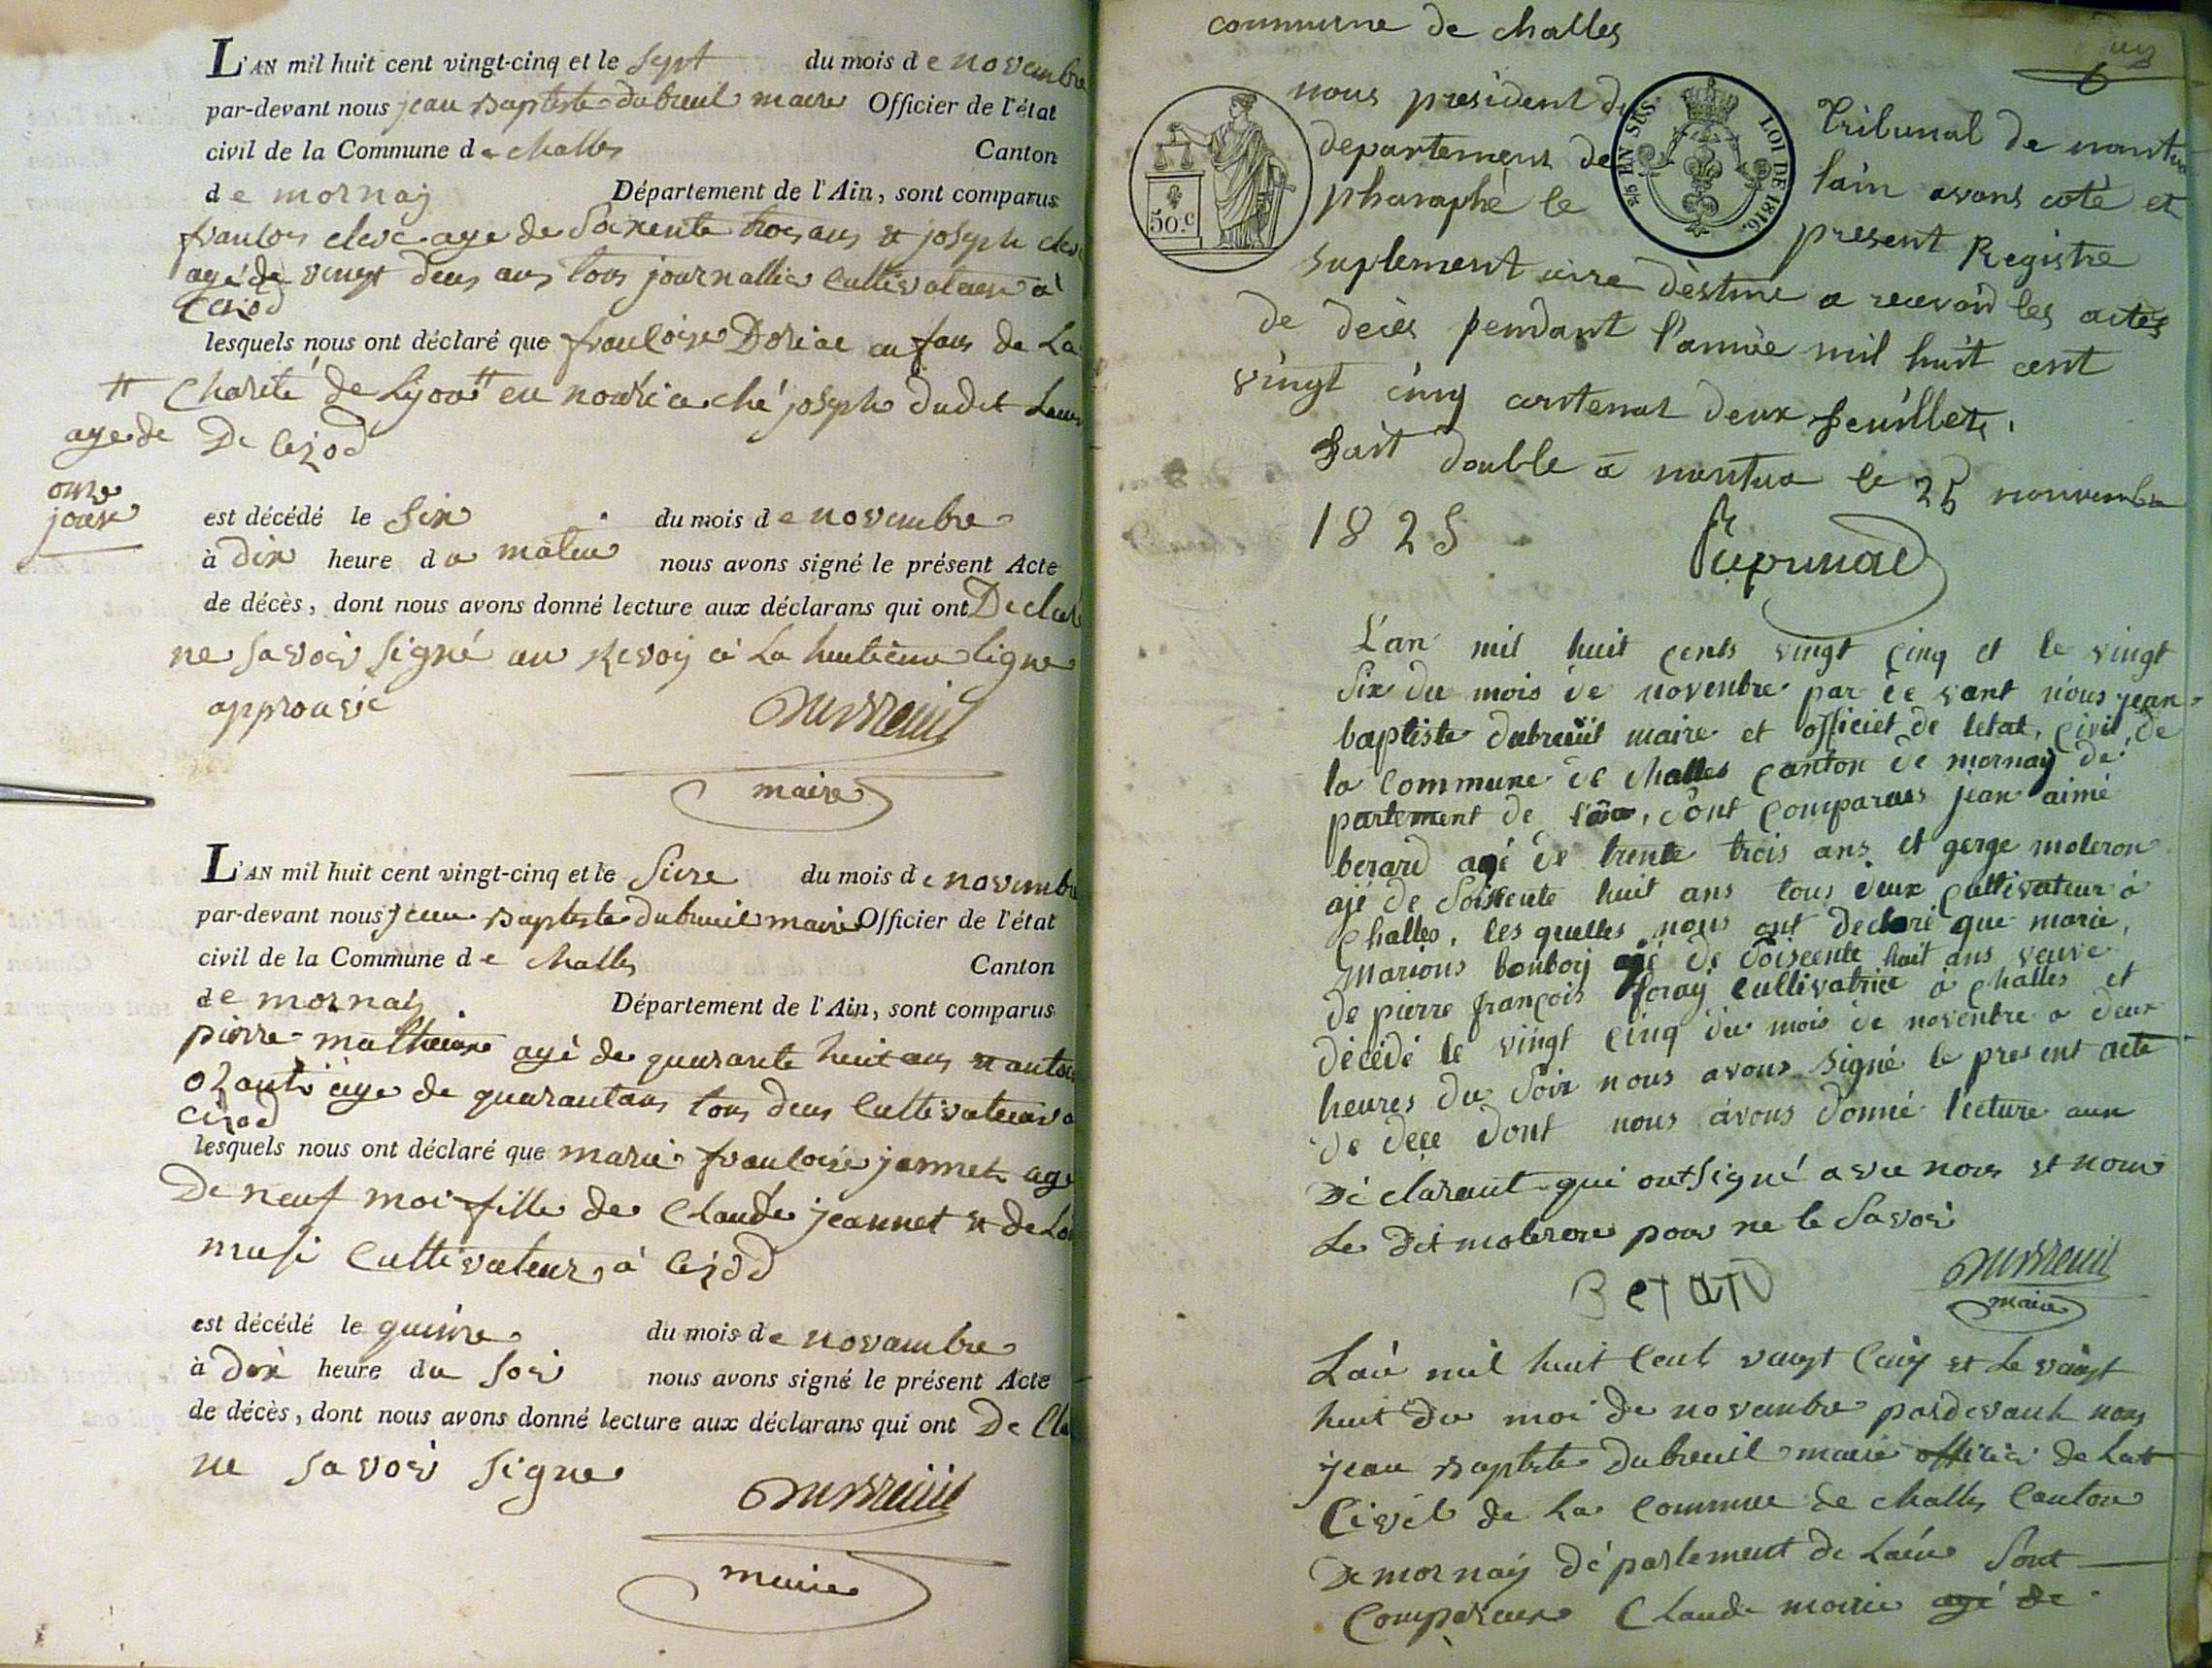 L'AN mil huit cent vingt-cinq et le sept du mois de novembre
par-devant nous jean Baptiste dubreuil maire Officier de l'état
civil de la Commune de challes Canton
de mornay Département de l'Ain, sont comparus
age de Soixente trois ans et joseph
agé de vingt deux ans tous journallier cultivateur à
lesquels nous ont déclaré que françoise de La
# Charité de Lyon # en nourice ché joseph dudit
age de De ceizod
onze
joure
est décédé le six du mois de novembre
à dix heure du matin nous avons signé le présent Acte
de décès, dont nous avons donné lecture aux déclarans qui ont Declaré
ne savoir signé au Revoy à La huitième ligne
approuvé
Dubreuil
maire
L'AN mil huit cent vingt-cinq et le Seize du mois de novembre
par-devant nous jean Baptiste dubreuil maire Officier de l'état
civil de la Commune de challes Canton
de mornay Département de l'Ain, sont comparus
pierre agé de quarante huit ans et
age de quarantans tous deux Cultivateur a
lesquels nous ont déclaré que marie françoise jannet agé
De neuf moi fille de Claude jeannet et de
Cultivateur à ceizod
est décédé le quinze du mois de novambre
à dix heure du soir nous avons signé le présent Acte
de décès, dont nous avons donné lecture aux déclarans qui ont De Cla
ne savoir signe
Dubreuil
maire
commune de challes
6
nous president du Tribunal de nantua
departement de lain avons coté et
pharaphé le present Registre
50.c
EN SUS.
LOI DE 1816.
suplement aire déstiné a recevoir les actes
de decès pendant l'année mil huit cent
vingt cinq contenant deux feuillets.
fait double a nantua le 25 nouvembre
1825
L'an mil huit cents vingt cinq et le vingt
six du mois de novenbre par de vant nous jean=
baptiste dubreuil maire et officiet de letat, civil, de
la commune de challes canton de mornay dé
partement de l'ain, sont comparues jean aimé
berard agé de trente trois ans et gerge moleron
ajé de soissente huit ans tous deux cultivateur à
challes, les quelles nous ont declaré que marie,
Marions bonborj ajé de soiscente huit ans veuve
de pierre françois foray cultivatrice à challes et
décédé le vingt cinq du mois de novenbre a deux
heures du soir nous avons signé le present acte
de déce dont nous avons donné lecture aux
Dé clarant qui ont signé avec nous et nom
Le dit moleron pour ne le savoir
BerarD
Dubreuil
maire
Lan mil huit Cent vingt Cinq et Le vingt
huit du moi de novenbre pardevant nous
jean Baptiste Dubreuil maire officier de Latt
Civil de La Commune de challes Canton
De mornay Département de Lain Sont
Comparux Claude agé de